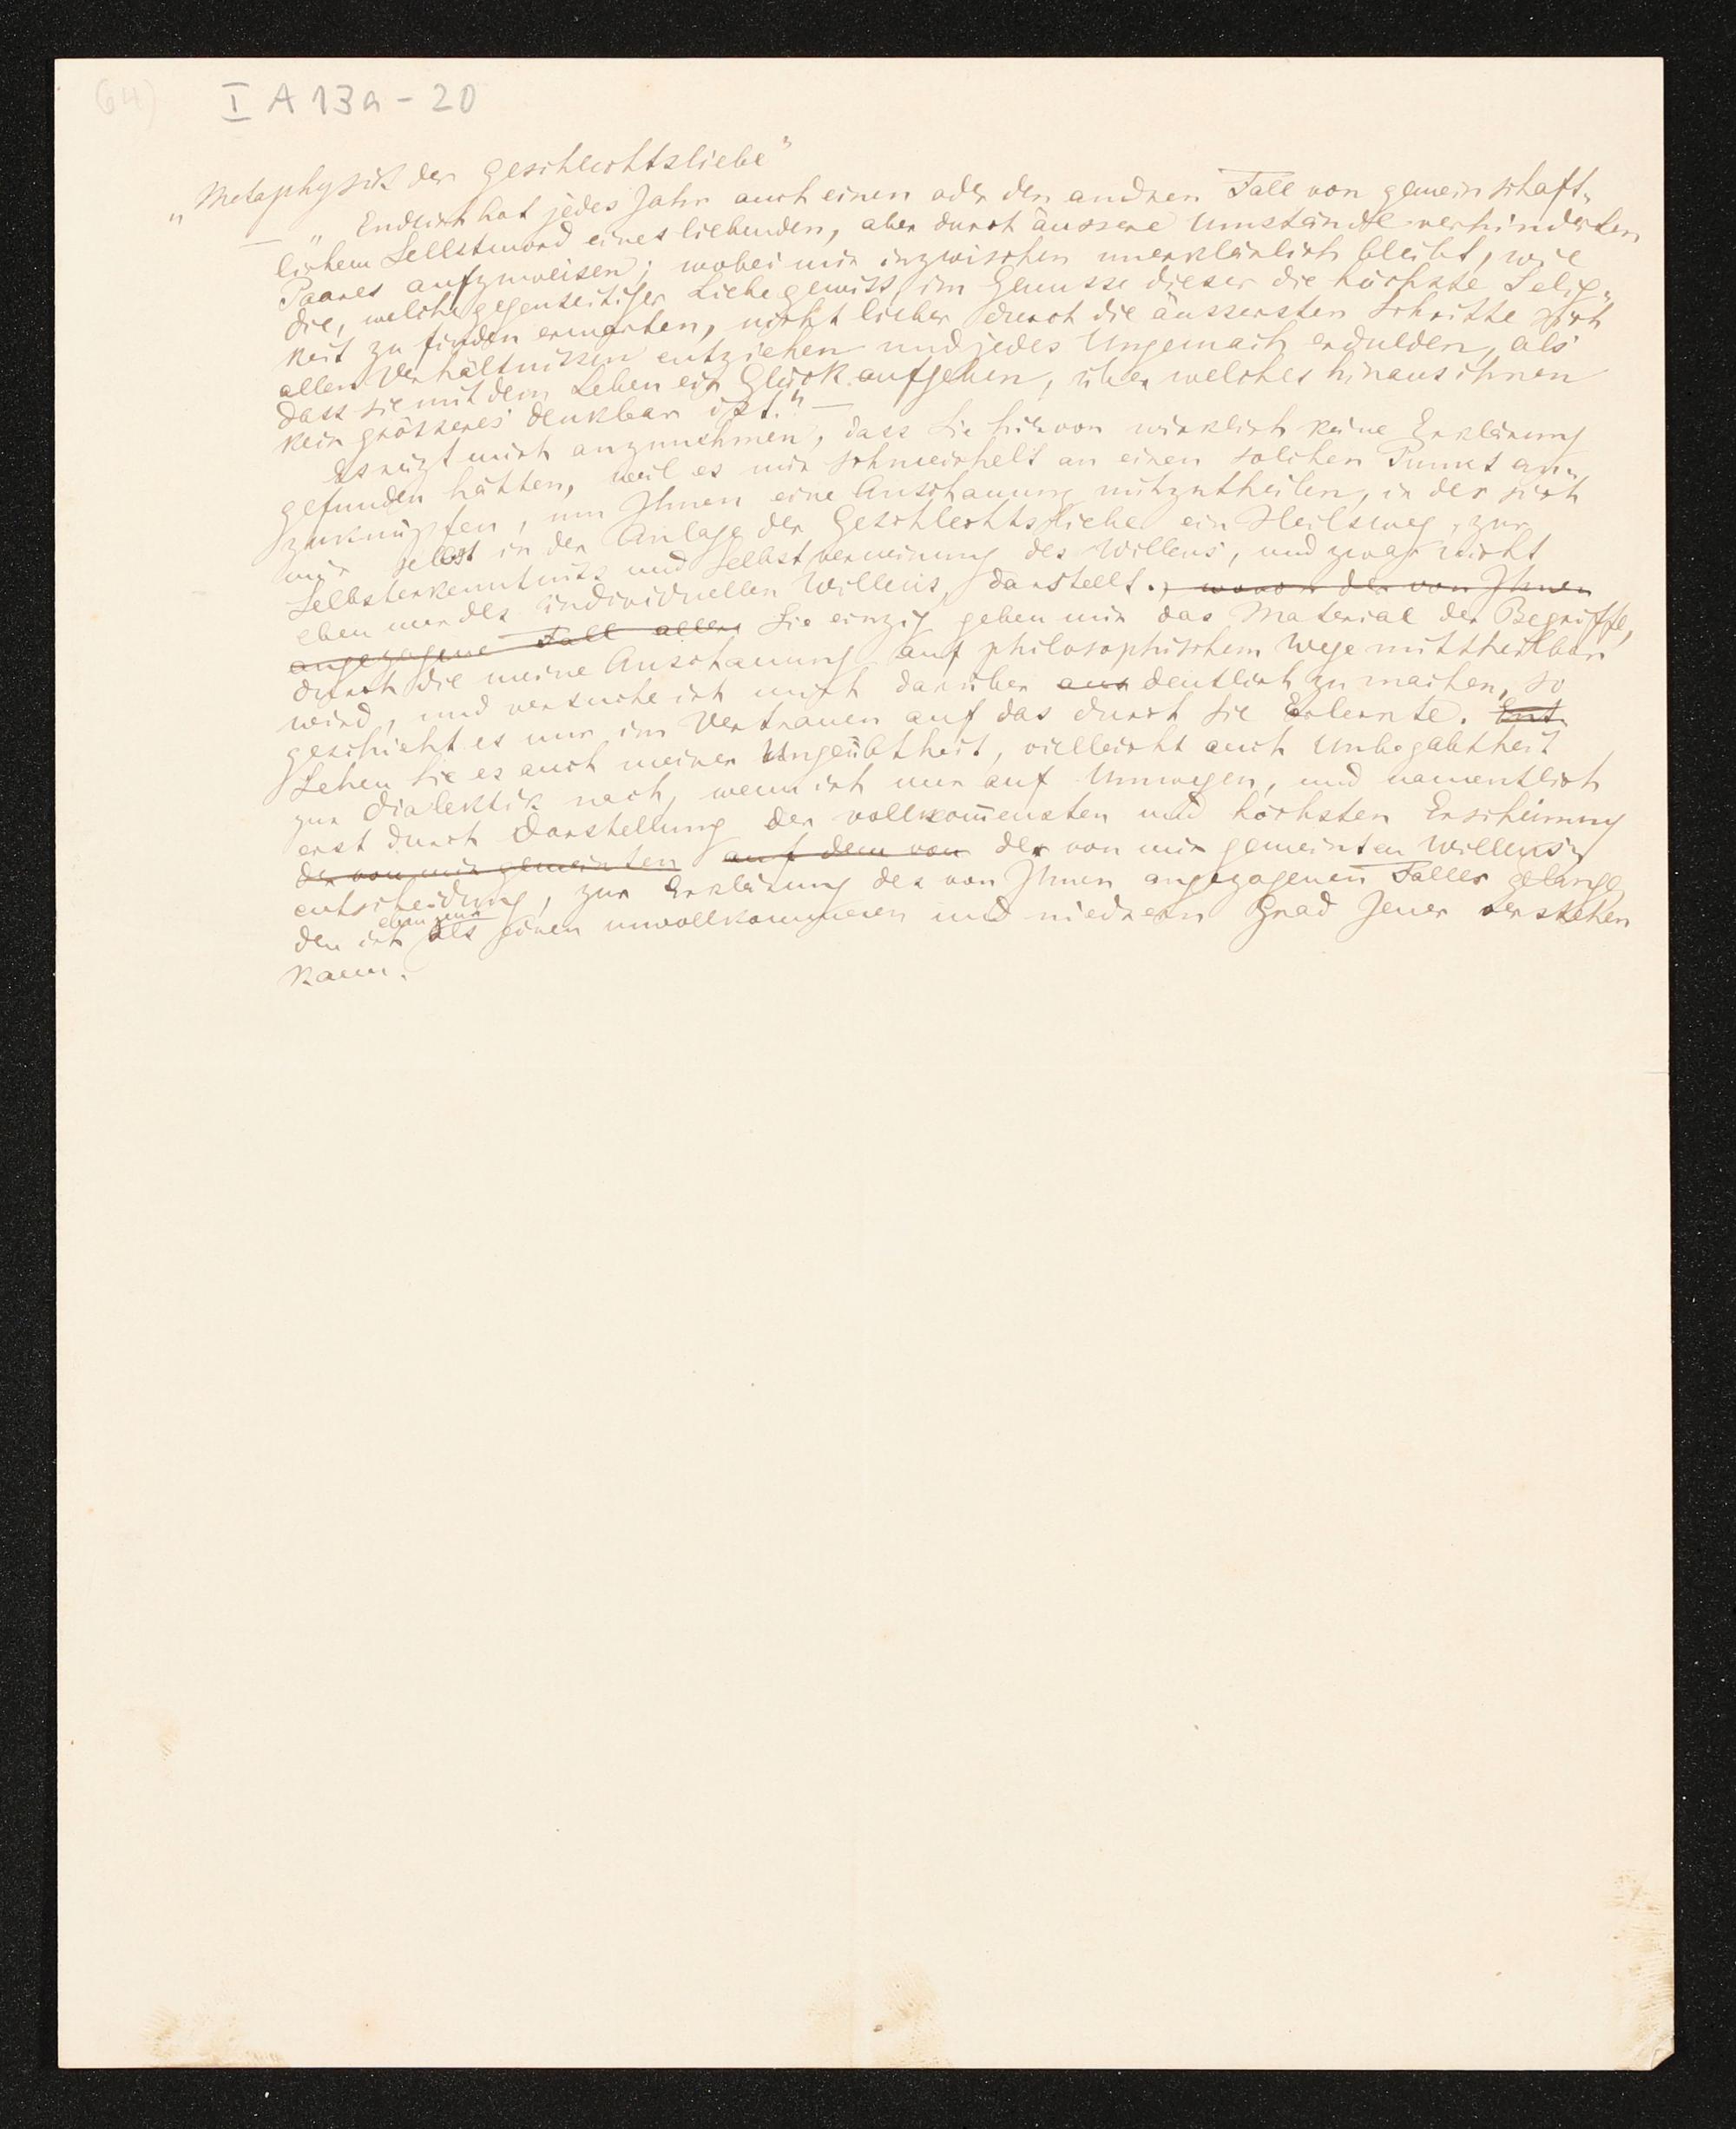 (64)
I A 13a - 20
„Metaphysik der Geschlechtsliebe"
— „Endlich hat jedes Jahr auch einen oder den andren Fall von gemeinschaft„
lichem Selbstmord eines liebenden, aber durch äussere Umstände verhinderten
Paares aufzuweisen; wobei mir inzwischen unerklärlich bleibt, wie
die, welche gegenseitiger Liebe gewiss, im Genusse dieser die höchste Selig„
keit zu finden erwarten, nicht lieber durch die äussersten Schritte sich
allen Verhältnissen entziehen und jedes Ungemach erdulden, als
dass sie mit dem Leben ein Glück aufgeben, über welches hinaus ihnen
kein grösseres denkbar ist." —
Es reizt mich anzunehmen, dass Sie hiervon wirklich keine Erklärung
gefunden hätten, weil es mir schmeichelt an einen solchen Punkt an„
zuknüpfen, um Ihnen eine Anschauung mitzutheilen, in der sich
mir selbst in der Anlage der Geschlechtsliebe ein Heilsweg zur
Selbsterkenntniss und Selbstverneinung des Willens, und zwar nicht
eben nur des individuellen Willens, darstellt. wovon der von Ihnen
angezogene Fall aller Sie einzig geben mir das Material der Begriffe,
durch die meine Anschauung auf philosophischem Wege mittheilbar
wird, und versuche ich mich darüber aus deutlich zu machen, so
geschieht es nur im Vertrauen auf das durch Sie Erlernte. Ent
Sehen Sie es auch meiner Ungeübtheit, vielleicht auch Unbegabtheit
zur Dialektik nach, wenn ich nur auf Umwegen, und namentlich
erst durch Darstellung der vollkom̅ensten und höchsten Erscheinung
der von mir gemeinten auf dem von der von mir gemeinten Willens„
entscheidung, zur Erklärung des von Ihnen angezogenen Falles gelange,
eben nur
den ich als einen unvollkommenen und niedren Grad Jener verstehen
kann.